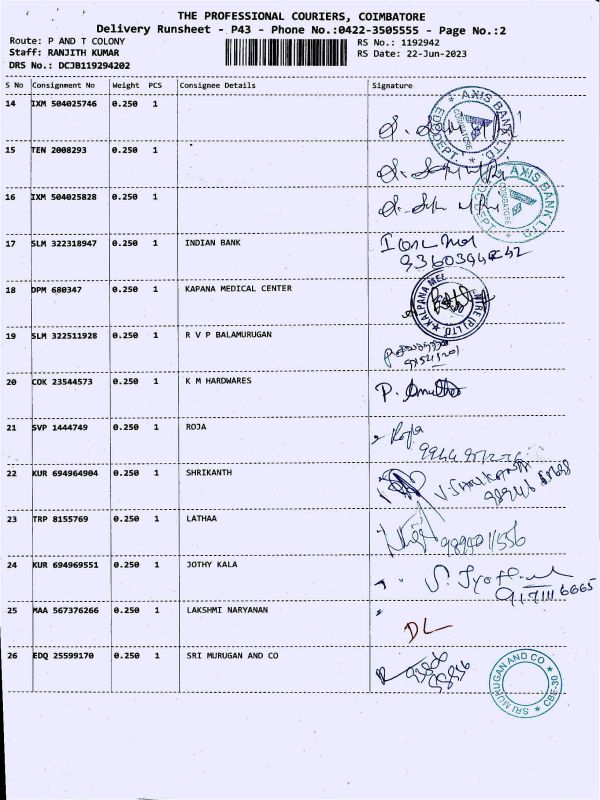 THE PROFESSIONAL COURIERS, COIMBATORE
Delivery Runsheet - P43 - Phone No.:0422-3505555 - Page No.:2
Route: P AND T COLONY
RS No.: 1192942
Staff: RANJITH KUMAR
RS Date: 22-Jun-2023
DRS No.: DCJB119294202
S No Consignment No Weight PCS Consignee Details Signature
14 IXM 504025746 0.250 1
AXIS BANK LTD.
COIMBATORE
15 TEN 2008293 0.250 1
16 IXM 504025828 0.250 1
AXIS BANK LTD.
COIMBATORE
17 SLM 322318947 0.250 1 INDIAN BANK
18 DPM 680347 0.250 1 KAPANA MEDICAL CENTER
19 SLM 322511928 0.250 1 R V P BALAMURUGAN
20 COK 23544573 0.250 1 K M HARDWARES P.
21 SVP 1444749 0.250 1 ROJA Roja
22 KUR 694964904 0.250 1 SHRIKANTH
23 TRP 8155769 0.250 1 LATHAA
24 KUR 694969551 0.250 1 JOTHY KALA
25 MAA 567376266 0.250 1 LAKSHMI NARYANAN DL
26 EDQ 25599170 0.250 1 SRI MURUGAN AND CO
SRI MURUGAN AND CO